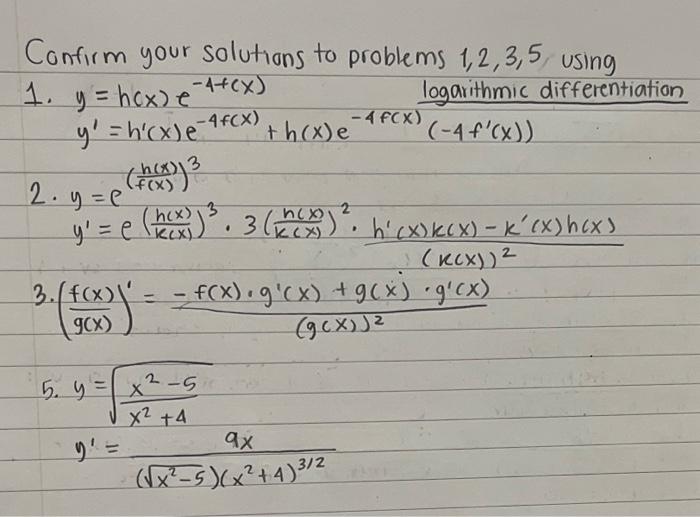 Confirm your solutions to problems 1,2,3,5, using
logarithmic differentiation
1. y = h(x) e^{-4f(x)}
y' = h'(x)e^{-4f(x)} + h(x)e^{-4f(x)} (-4f'(x))
2. y = e^{(h(x)/f(x))^3}
y' = e^{(h(x)/k(x))^3} · 3(h(x)/k(x))^2 · (h'(x)k(x) - k'(x)h(x))/(k(x))^2
3. (f(x)/g(x))' = (-f(x)·g'(x) + g(x)·g'(x))/(g(x))^2
5. y = √((x^2-5)/(x^2+4))
y' = 9x/((√x^2-5)(x^2+4)^{3/2})